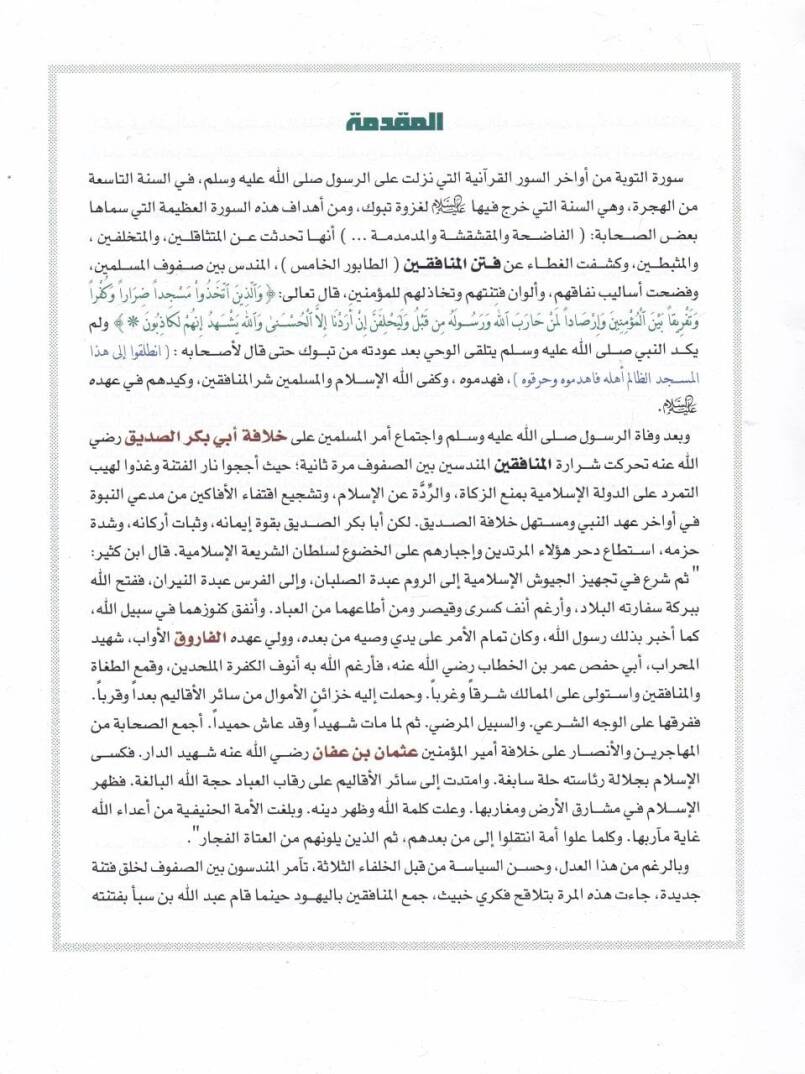 المقدمة
سورة التوبة من أواخر السور القرآنية التي نزلت على الرسول صلى الله عليه وسلم، في السنة التاسعة
من الهجرة، وهي السنة التي خرج فيها عليه السلام لغزوة تبوك، ومن أهداف هذه السورة العظيمة التي سماها
بعض الصحابة: ( الفاضحة والمقشقشة والمدمدمة ... ) أنها تحدثت عن المتثاقلين، والمتخلفين ،
والمثبطين، وكشفت الغطاء عن فتن المنافقين ( الطابور الخامس ) ، المندس بين صفوف المسلمين،
وفضحت أساليب نفاقهم، وألوان فتنتهم وتخاذلهم للمؤمنين، قال تعالى: ﴿ وَالَّذِينَ اتَّخَذُواْ مَسْجِداً ضِرَاراً وَكُفْراً
وَتَفْرِيقاً بَيْنَ الْمُؤْمِنِينَ وَإِرْصَاداً لِّمَنْ حَارَبَ اللَّهَ وَرَسُولَهُ مِن قَبْلُ وَلَيَحْلِفَنَّ إِنْ أَرَدْنَا إِلاَّ الْحُسْنَى وَاللَّهُ يَشْهَدُ إِنَّهُمْ لَكَاذِبُونَ * ﴾ ولم
يكد النبي صلى الله عليه وسلم يتلقى الوحي بعد عودته من تبوك حتى قال لأصحابه : ( انطلقوا إلى هذا
المسجد الظالم أهله فاهدموه وحرقوه ) ، فهدموه ، وكفى الله الإسلام والمسلمين شر المنافقين، وكيدهم في عهده
عليه السلام.
وبعد وفاة الرسول صلى الله عليه وسلم واجتماع أمر المسلمين على خلافة أبي بكر الصديق رضي
الله عنه تحركت شرارة المنافقين المندسين بين الصفوف مرة ثانية؛ حيث أججوا نار الفتنة وغذوا لهيب
التمرد على الدولة الإسلامية بمنع الزكاة، والرِّدَّة عن الإسلام، وتشجيع اقتفاء الأفاكين من مدعي النبوة
في أواخر عهد النبي ومستهل خلافة الصديق. لكن أبا بكر الصديق بقوة إيمانه، وثبات أركانه، وشدة
حزمه، استطاع دحر هؤلاء المرتدين وإجبارهم على الخضوع لسلطان الشريعة الإسلامية. قال ابن كثير:
" ثم شرع في تجهيز الجيوش الإسلامية إلى الروم عبدة الصلبان، وإلى الفرس عبدة النيران، ففتح الله
ببركة سفارته البلاد، وأرغم أنف كسرى وقيصر ومن أطاعهما من العباد. وأنفق كنوزهما في سبيل الله،
كما أخبر بذلك رسول الله، وكان تمام الأمر على يدي وصيه من بعده، وولي عهده الفاروق الأواب، شهيد
المحراب، أبي حفص عمر بن الخطاب رضي الله عنه، فأرغم الله به أنوف الكفرة الملحدين، وقمع الطغاة
والمنافقين واستولى على الممالك شرقاً وغرباً. وحملت إليه خزائن الأموال من سائر الأقاليم بعداً وقرباً.
ففرقها على الوجه الشرعي. والسبيل المرضي. ثم لما مات شهيداً وقد عاش حميداً. أجمع الصحابة من
المهاجرين والأنصار على خلافة أمير المؤمنين عثمان بن عفان رضي الله عنه شهيد الدار. فكسى
الإسلام بجلالة رئاسته حلة سابغة. وامتدت إلى سائر الأقاليم على رقاب العباد حجة الله البالغة. فظهر
الإسلام في مشارق الأرض ومغاربها. وعلت كلمة الله وظهر دينه. وبلغت الأمة الحنيفية من أعداء الله
غاية مآربها. وكلما علوا أمة انتقلوا إلى من بعدهم، ثم الذين يلونهم من العتاة الفجار".
وبالرغم من هذا العدل، وحسن السياسة من قبل الخلفاء الثلاثة، تآمر المندسون بين الصفوف لخلق فتنة
جديدة، جاءت هذه المرة بتلاقح فكري خبيث، جمع المنافقين باليهود حينما قام عبد الله بن سبأ بفتنته